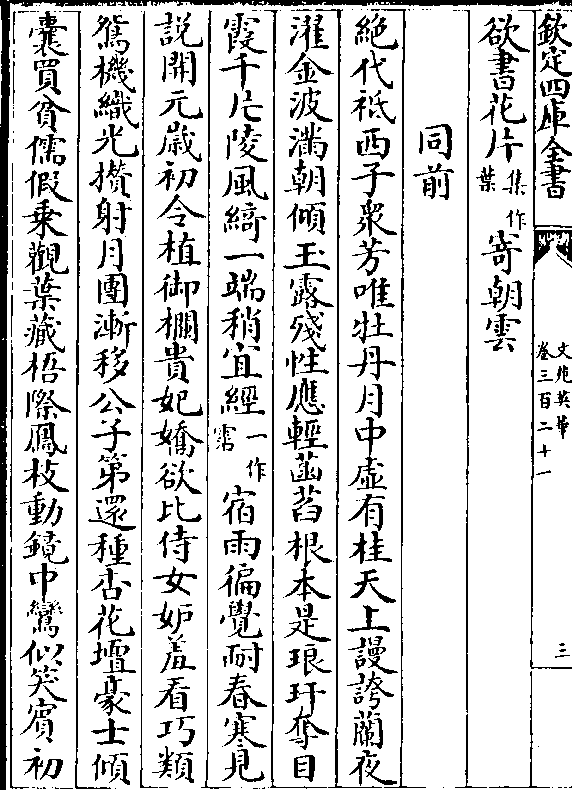 欽定四庫全書
文苑英華
卷三百二十一
三
欲書花片集作葉寄朝雲
同前
絶代祗西子衆芳唯牡丹月中虚有桂天上謾誇蘭夜
濯金波滿朝傾玉露殘性應輕菡萏根本是琅玕奪目
霞千片陵風綺一端稍宜經一作霑宿雨徧覺耐春寒見
説開元歳初令植御欄貴妃嬌欲比侍女妒羞看巧類
鴛機織光攢射月團漸移公子第還種杏花壇豪士傾
囊買貧儒假乗觀葉藏梧際鳳枝動鏡中鸞似笑賓初